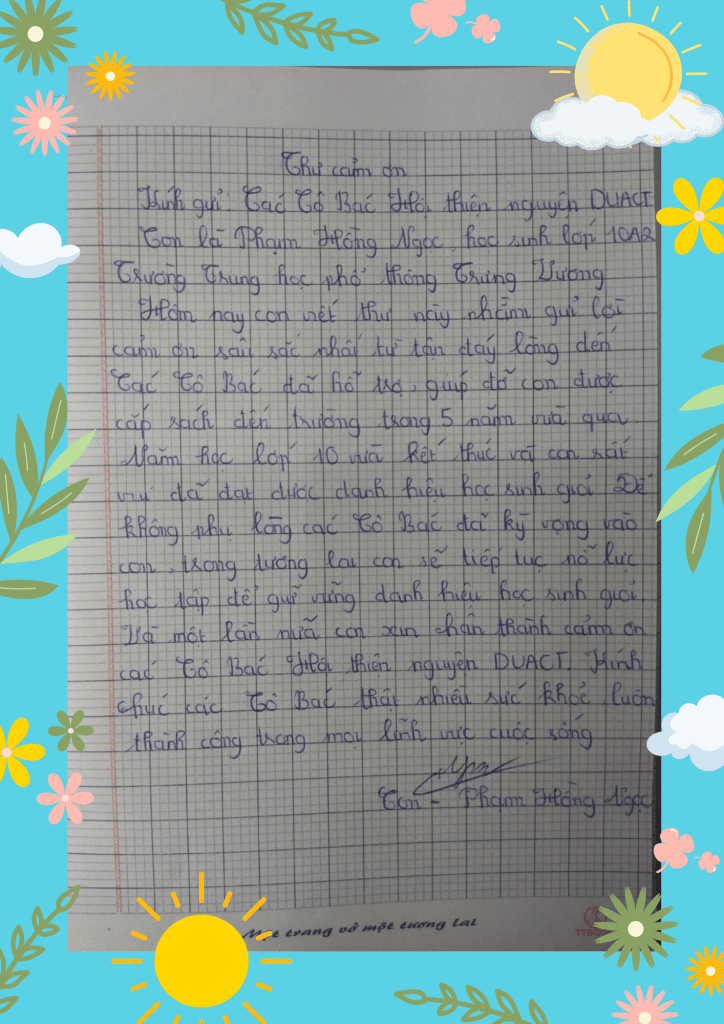 Thư cảm ơn
Kính gửi: Các Cô Bác Hội thiện nguyện DUACT
Con là Phạm Hồng Ngọc, học sinh lớp 10A2
Trường Trung học phổ thông Trưng Vương
Hôm nay con viết thư này nhằm gửi lời
cảm ơn sâu sắc nhất từ tận đáy lòng đến
Các Cô Bác đã hỗ trợ, giúp đỡ con được
cắp sách đến trường trong 5 năm vừa qua.
Năm học lớp 10 vừa kết thúc với con rất
vui đã đạt được danh hiệu học sinh giỏi. Để
không phụ lòng các Cô Bác đã kỳ vọng vào
con, trong tương lai con sẽ tiếp tục nỗ lực
học tập để giữ vững danh hiệu học sinh giỏi.
Và một lần nữa con xin chân thành cảm ơn
các Cô Bác Hội thiện nguyện DUACT. Kính
chúc các Cô Bác thật nhiều sức khoẻ, luôn
thành công trong mọi lĩnh vực cuộc sống
Con - Phạm Hồng Ngọc
Một trang vở một tương lai